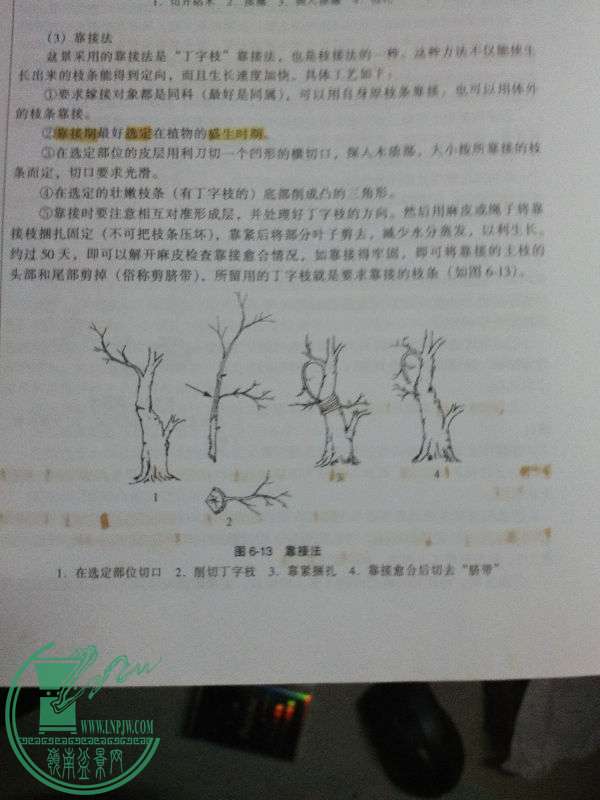 (3)靠接法
盆景采用的靠接法是“丁字枝”靠接法，也是枝接法的一种。这种方法不仅能使生
长出来的枝条能得到定向，而且生长速度加快。具体工艺如下：
①要求嫁接对象都是同科（最好是同属），可以用自身原枝条靠接，也可以用体外
的枝条靠接。
②靠接期最好选定在植物的盛生时期。
③在选定部位的皮层用利刀切一个凹形的横切口，深入木质部，大小按所靠接的枝
条而定，切口要求光滑。
④在选定的壮嫩枝条（有丁字枝的）底部削成凸的三角形。
⑤靠接时要注意相互对准形成层，并处理好丁字枝的方向。然后用麻皮或绳子将靠
接枝捆扎固定（不可把枝条压坏），靠紧后将部分叶子剪去，减少水分蒸发，以利生长。
约过50天，即可以解开麻皮检查靠接愈合情况，如靠接得牢固，即可将靠接的主枝的
头部和尾部剪掉（俗称剪脐带），所留用的丁字枝就是要求靠接的枝条（如图6-13）。
1
2
3
4
图6-13 靠接法
1. 在选定部位切口 2. 削切丁字枝 3. 靠紧捆扎 4. 靠接愈合后切去“脐带”
WWW.LNPJW.COM
嶺南盆景网